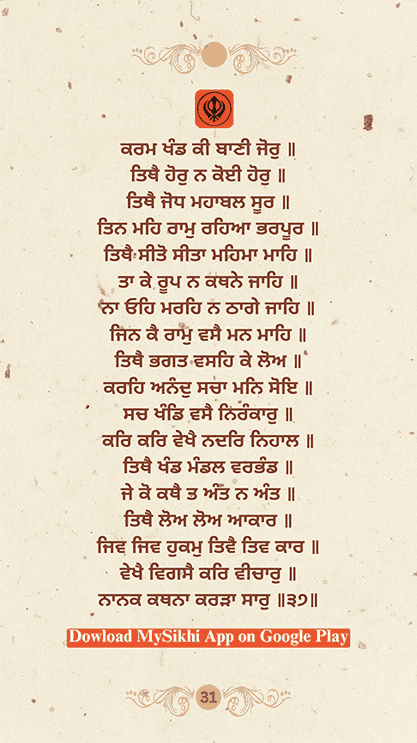 ਕਰਮ ਖੰਡ ਕੀ ਬਾਣੀ ਜੋਰੁ ॥
ਤਿਥੈ ਹੋਰੁ ਨ ਕੋਈ ਹੋਰੁ ॥
ਤਿਥੈ ਜੋਧ ਮਹਾਬਲ ਸੂਰ ॥
ਤਿਨ ਮਹਿ ਰਾਮੁ ਰਹਿਆ ਭਰਪੂਰ ॥
ਤਿਥੈ ਸੀਤੋ ਸੀਤਾ ਮਹਿਮਾ ਮਾਹਿ ॥
ਤਾ ਕੇ ਰੂਪ ਨ ਕਥਨੇ ਜਾਹਿ ॥
ਨਾ ਓਹਿ ਮਰਹਿ ਨ ਠਾਗੇ ਜਾਹਿ ॥
ਜਿਨ ਕੈ ਰਾਮੁ ਵਸੈ ਮਨ ਮਾਹਿ ॥
ਤਿਥੈ ਭਗਤ ਵਸਹਿ ਕੇ ਲੋਅ ॥
ਕਰਹਿ ਅਨੰਦੁ ਸਚਾ ਮਨਿ ਸੋਇ ॥
ਸਚ ਖੰਡਿ ਵਸੈ ਨਿਰੰਕਾਰੁ ॥
ਕਰਿ ਕਰਿ ਵੇਖੈ ਨਦਰਿ ਨਿਹਾਲ ॥
ਤਿਥੈ ਖੰਡ ਮੰਡਲ ਵਰਭੰਡ ॥
ਜੇ ਕੋ ਕਥੈ ਤ ਅੰਤ ਨ ਅੰਤ ॥
ਤਿਥੈ ਲੋਅ ਲੋਅ ਆਕਾਰ ॥
ਜਿਵ ਜਿਵ ਹੁਕਮੁ ਤਿਵੈ ਤਿਵ ਕਾਰ ॥
ਵੇਖੈ ਵਿਗਸੈ ਕਰਿ ਵੀਚਾਰੁ ॥
ਨਾਨਕ ਕਥਨਾ ਕਰੜਾ ਸਾਰੁ ॥੩੭॥
Dowload MySikhi App on Google Play
31